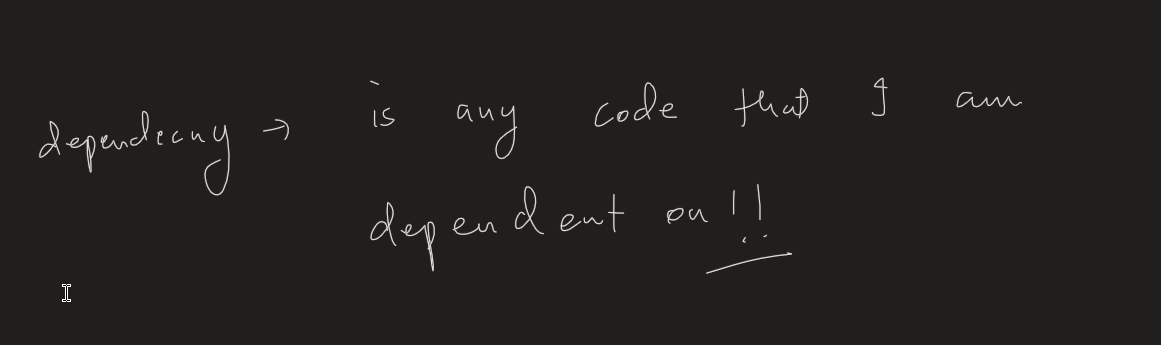 dependecny → is any code that I am
dependent on !!